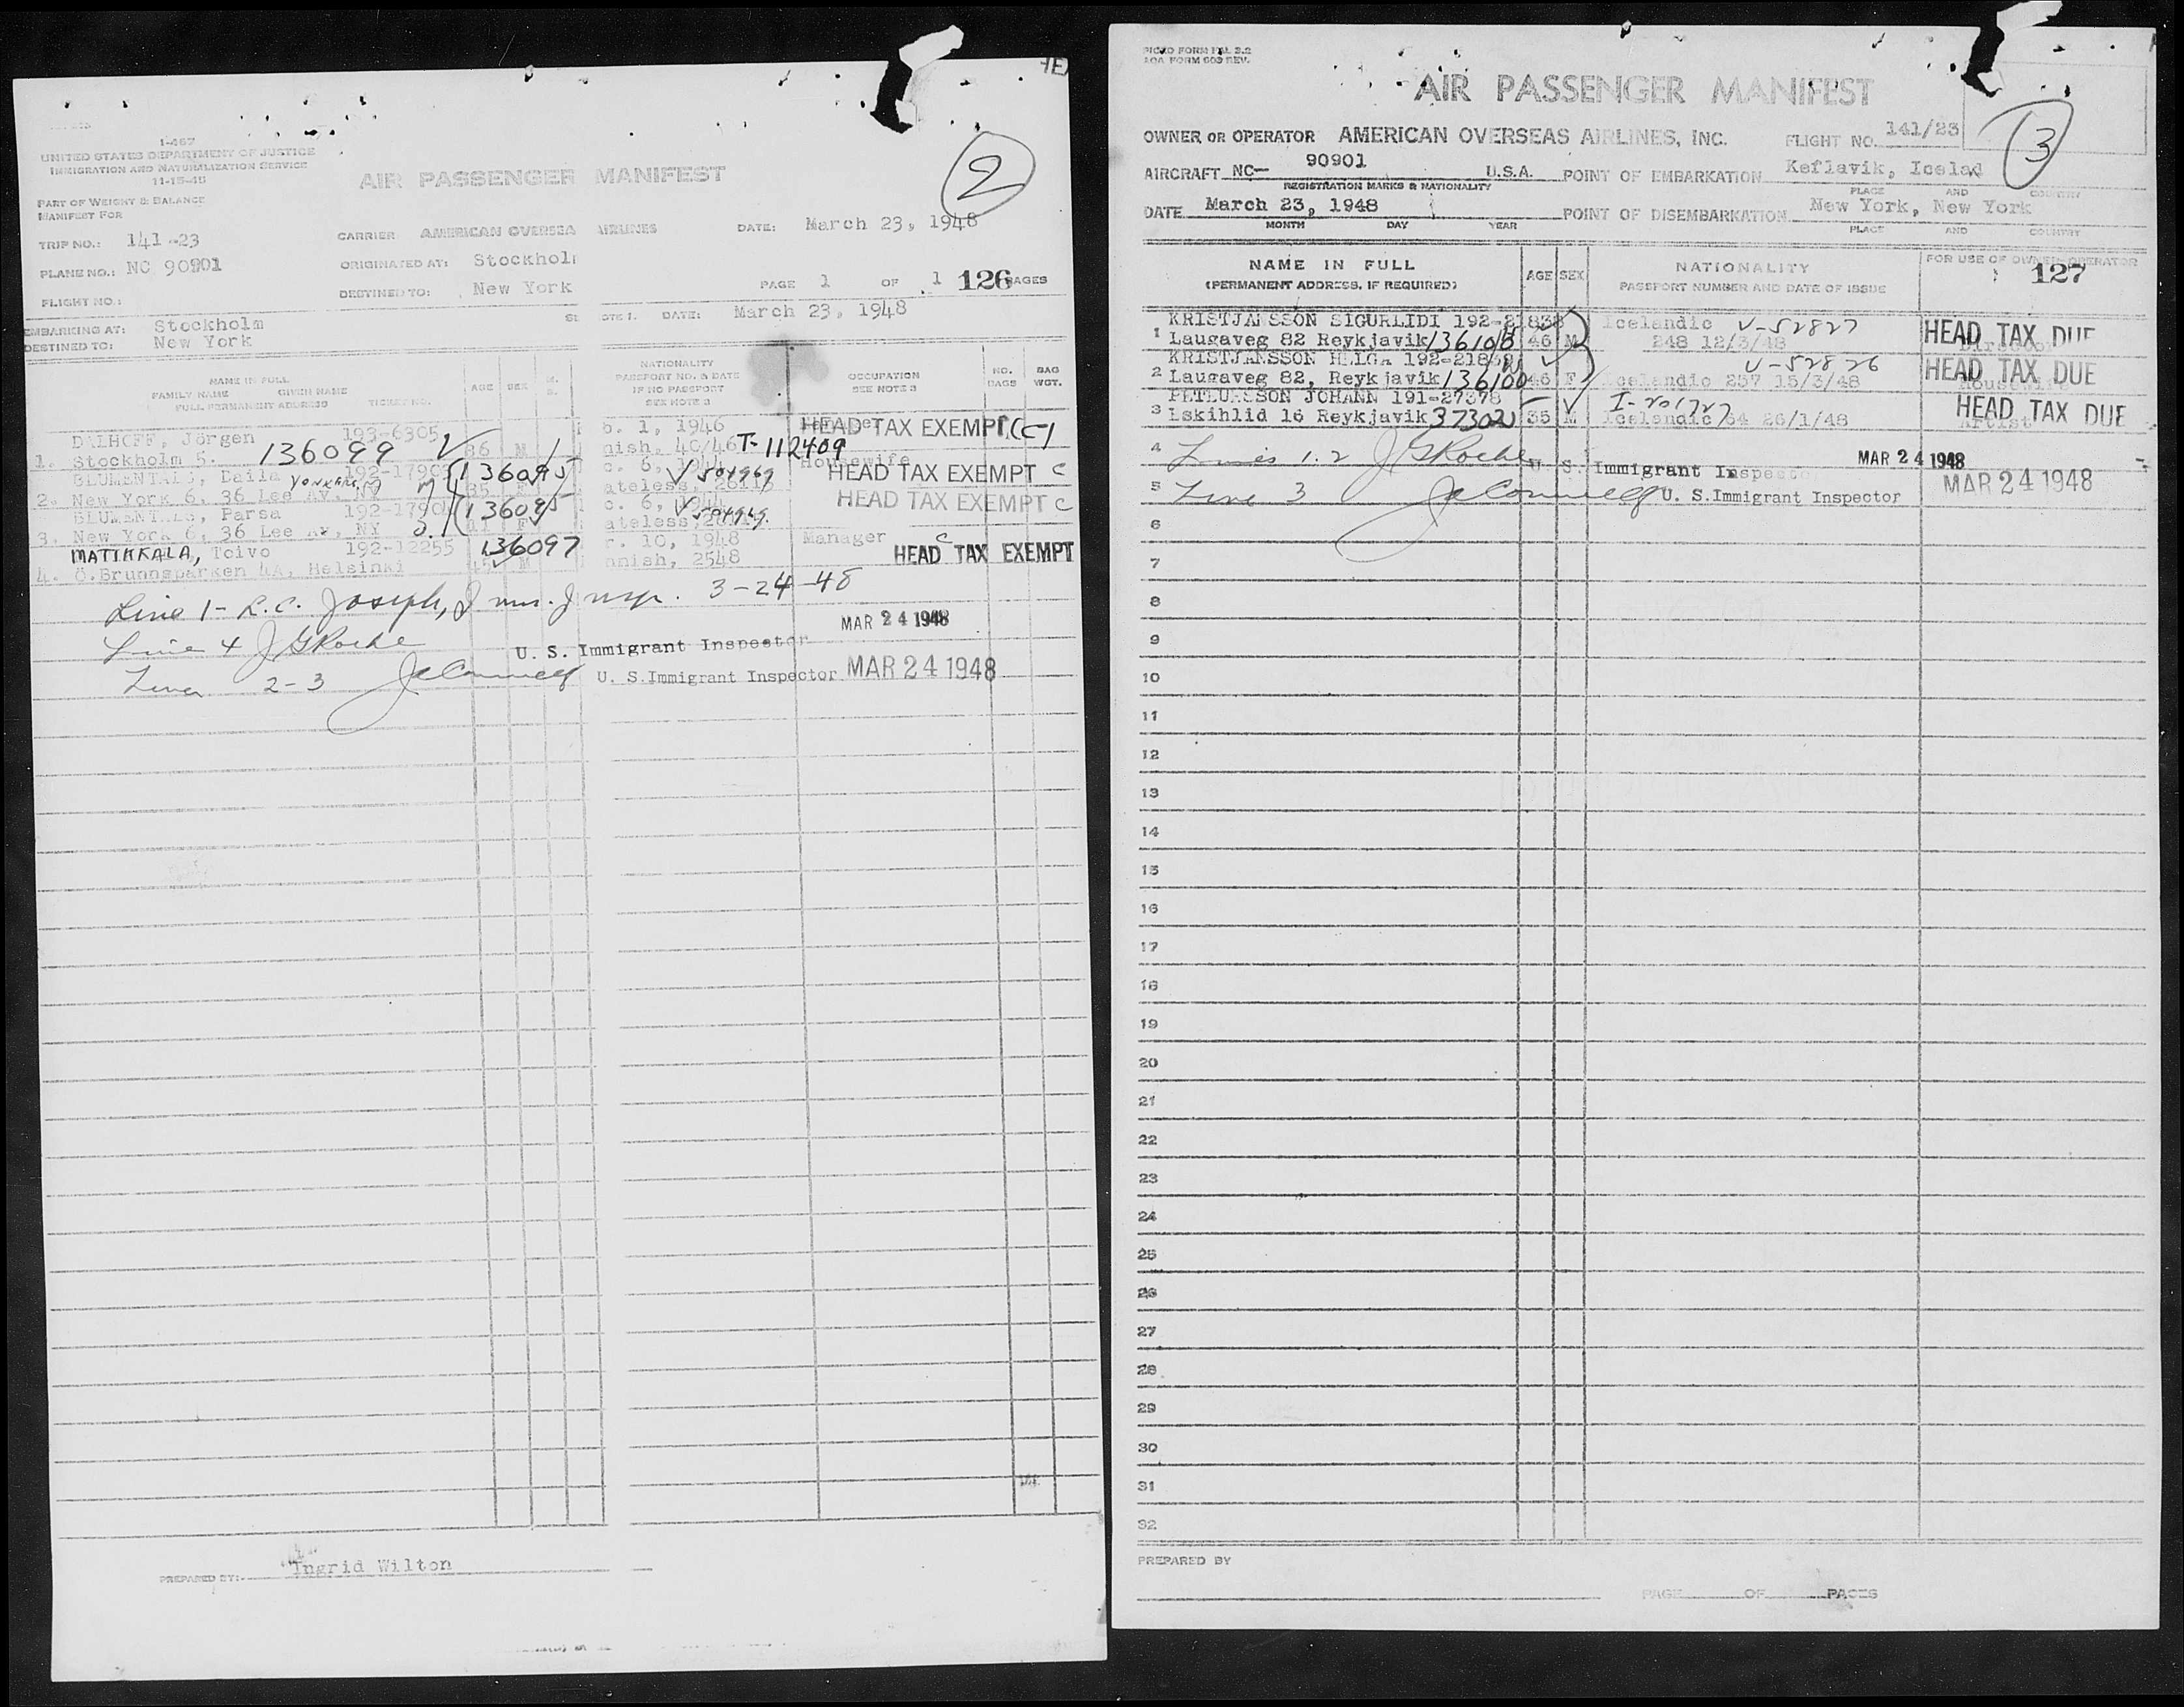 1-467
UNITED STATES DEPARTMENT OF JUSTICE
IMMIGRATION AND NATURALIZATION SERVICE
11-15-45
AIR PASSENGER MANIFEST
2
PART OF WEIGHT & BALANCE
MANIFEST FOR
TRIP NO.: 141-23
CARRIER AMERICAN OVERSEA AIRLINES
DATE: March 23, 1948
PLANE NO.: NC 90901
ORIGINATED AT: Stockhol
FLIGHT NO.:
DESTINED TO: New York
PAGE 1 OF 1 126 PAGES
EMBARKING AT: Stockholm
DATE: March 23, 1948
DESTINED TO: New York
NAME IN FULL
FAMILY NAME GIVEN NAME
FULL PERMANENT ADDRESS TICKET NO.
AGE SEX M. S.
NATIONALITY
PASSPORT NO. & DATE
IF NO PASSPORT
SEE NOTE 3
OCCUPATION
SEE NOTE 3
NO. BAGS
BAG WGT.
DALHOFF, Jörgen 193-6305 b. 1, 1946 HEAD TAX EXEMPT (C-)
1. Stockholm 5. 136099 36 M nish, 40/46 T-112409
BLUMENTALS, Daila 192-1790 136095 c. 6, V 504969 Housewife HEAD TAX EXEMPT C
2. New York 6, 36 Lee Av, NY Yonkers, NY 35 ateless,
BLUMENTALS, Parsa 192-17904 136095 c. 6, V 504969 HEAD TAX EXEMPT C
3. New York 6, 36 Lee Av, NY F ateless,
MATIKKALA, Toivo 192-12255 136097 r. 10, 1948 Manager C
4. Ö.Brunnsparken 4A, Helsinki 45 M nnish, 2548 HEAD TAX EXEMPT
Line 1- R.C. Joseph, Imm. Insp. 3-24-48
Line 4 J G Roche U. S. Immigrant Inspector MAR 24 1948
Lines 2-3 U. S. Immigrant Inspector MAR 24 1948
PREPARED BY: Ingrid Wilton
PICAO FORM FAL 2.2
AOA FORM 603 REV.
AIR PASSENGER MANIFEST
3
OWNER OR OPERATOR AMERICAN OVERSEAS AIRLINES, INC. FLIGHT NO. 141/23
AIRCRAFT NC- 90901 U.S.A. POINT OF EMBARKATION Keflavik, Icelad
REGISTRATION MARKS & NATIONALITY PLACE AND COUNTRY
DATE March 23, 1948 POINT OF DISEMBARKATION New York, New York
MONTH DAY YEAR PLACE AND COUNTRY
NAME IN FULL
(PERMANENT ADDRESS, IF REQUIRED)
AGE SEX
NATIONALITY
PASSPORT NUMBER AND DATE OF ISSUE
FOR USE OF OWNER OPERATOR
127
KRISTJANSSON SIGURLIDI 192-21838 Icelandic V-52827 HEAD TAX DUE
1 Laugaveg 82 Reykjavik 136101 46 M 248 12/3/48
KRISTJANSSON HELGA 192-21839 V-52826 HEAD TAX DUE
2 Laugaveg 82, Reykjavik 136100 46 F Icelandic 257 15/3/48 Housewife
PETURSSON JOHANN 191-27378 I-201727 HEAD TAX DUE
3 Eskihlid 16 Reykjavik 37302 35 M Icelandic 64 26/1/48 Artist
4 Lines 1.2 J G Roche U. S. Immigrant Inspecto MAR 24 1948
5 Line 3 U. S. Immigrant Inspector MAR 24 1948
6
7
8
9
10
11
12
13
14
15
16
17
18
19
20
21
22
23
24
25
26
27
28
29
30
31
32
PREPARED BY
PAGE OF PAGES